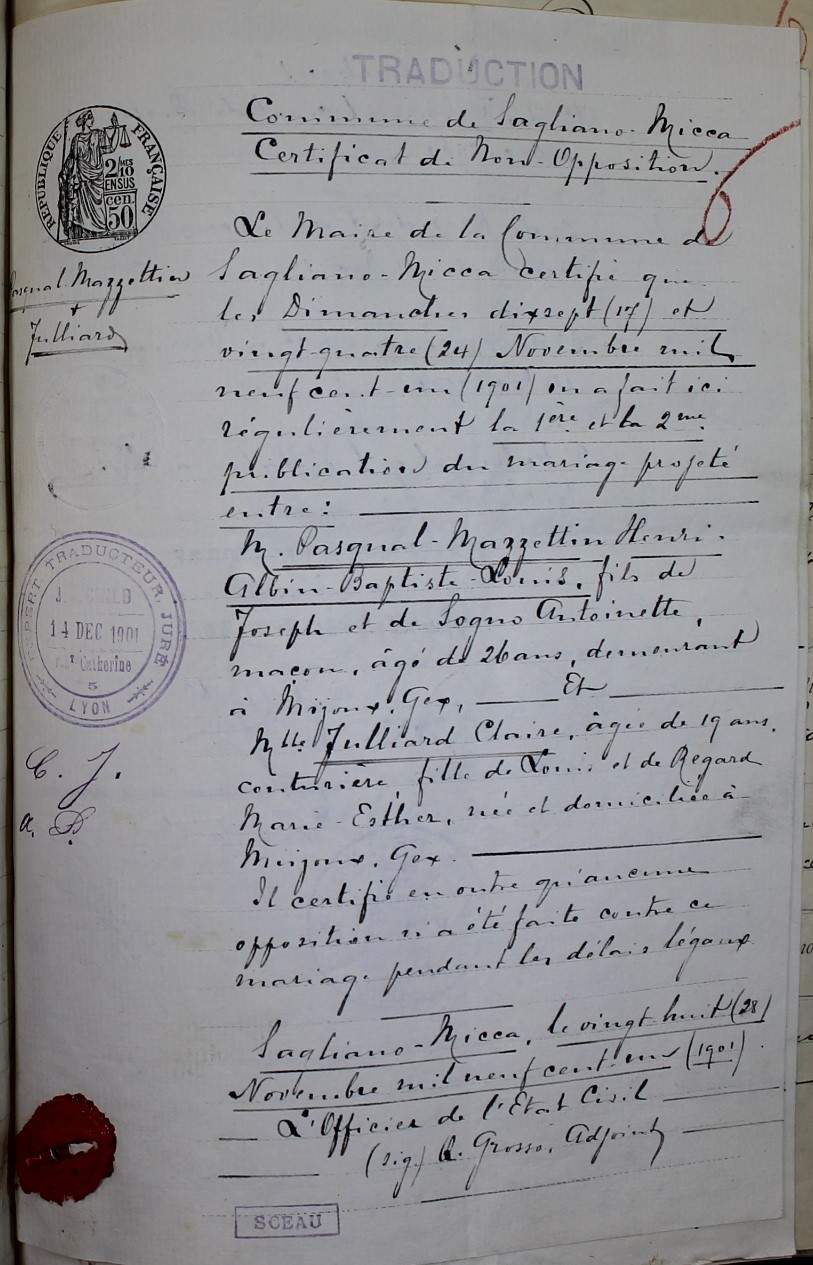 TRADUCTION
Commune de Sagliano-Micca
Certificat de Non-Opposition.
RÉPUBLIQUE FRANÇAISE
2/10 EN SUS
cen. 50
Pasqual-Mazzettin
+
Julliard
Le Maire de la Commune de
Sagliano-Micca certifie que
les Dimanches dixsept (17) et
vingt-quatre (24) Novembre mil
neuf cent-un (1901) on a fait ici
régulièrement la 1ère et la 2me
publication du mariage projeté
entre:
M. Pasqual-Mazzettin Henri-
Albin-Baptiste-Louis, fils de
Joseph et de Sogno Antoinette,
maçon, âgé de 26 ans, demeurant
à Mijoux, Gex, Et
Mlle Julliard Claire, âgée de 19 ans,
couturière, fille de Louis et de Regard
Marie-Esther, née et domiciliée à
Mijoux, Gex.
Il certifie en outre qu'aucune
opposition n'a été faite contre ce
mariage pendant les délais légaux
Sagliano-Micca, le vingt huit (28)
Novembre mil neuf cent-un (1901).
L'Officier de l'Etat Civil
(sig.) A. Grosso, Adjoint
SCEAU
EXPERT TRADUCTEUR JURÉ
14 DEC 1901
Catherine
5
LYON
C. J.
a. P.